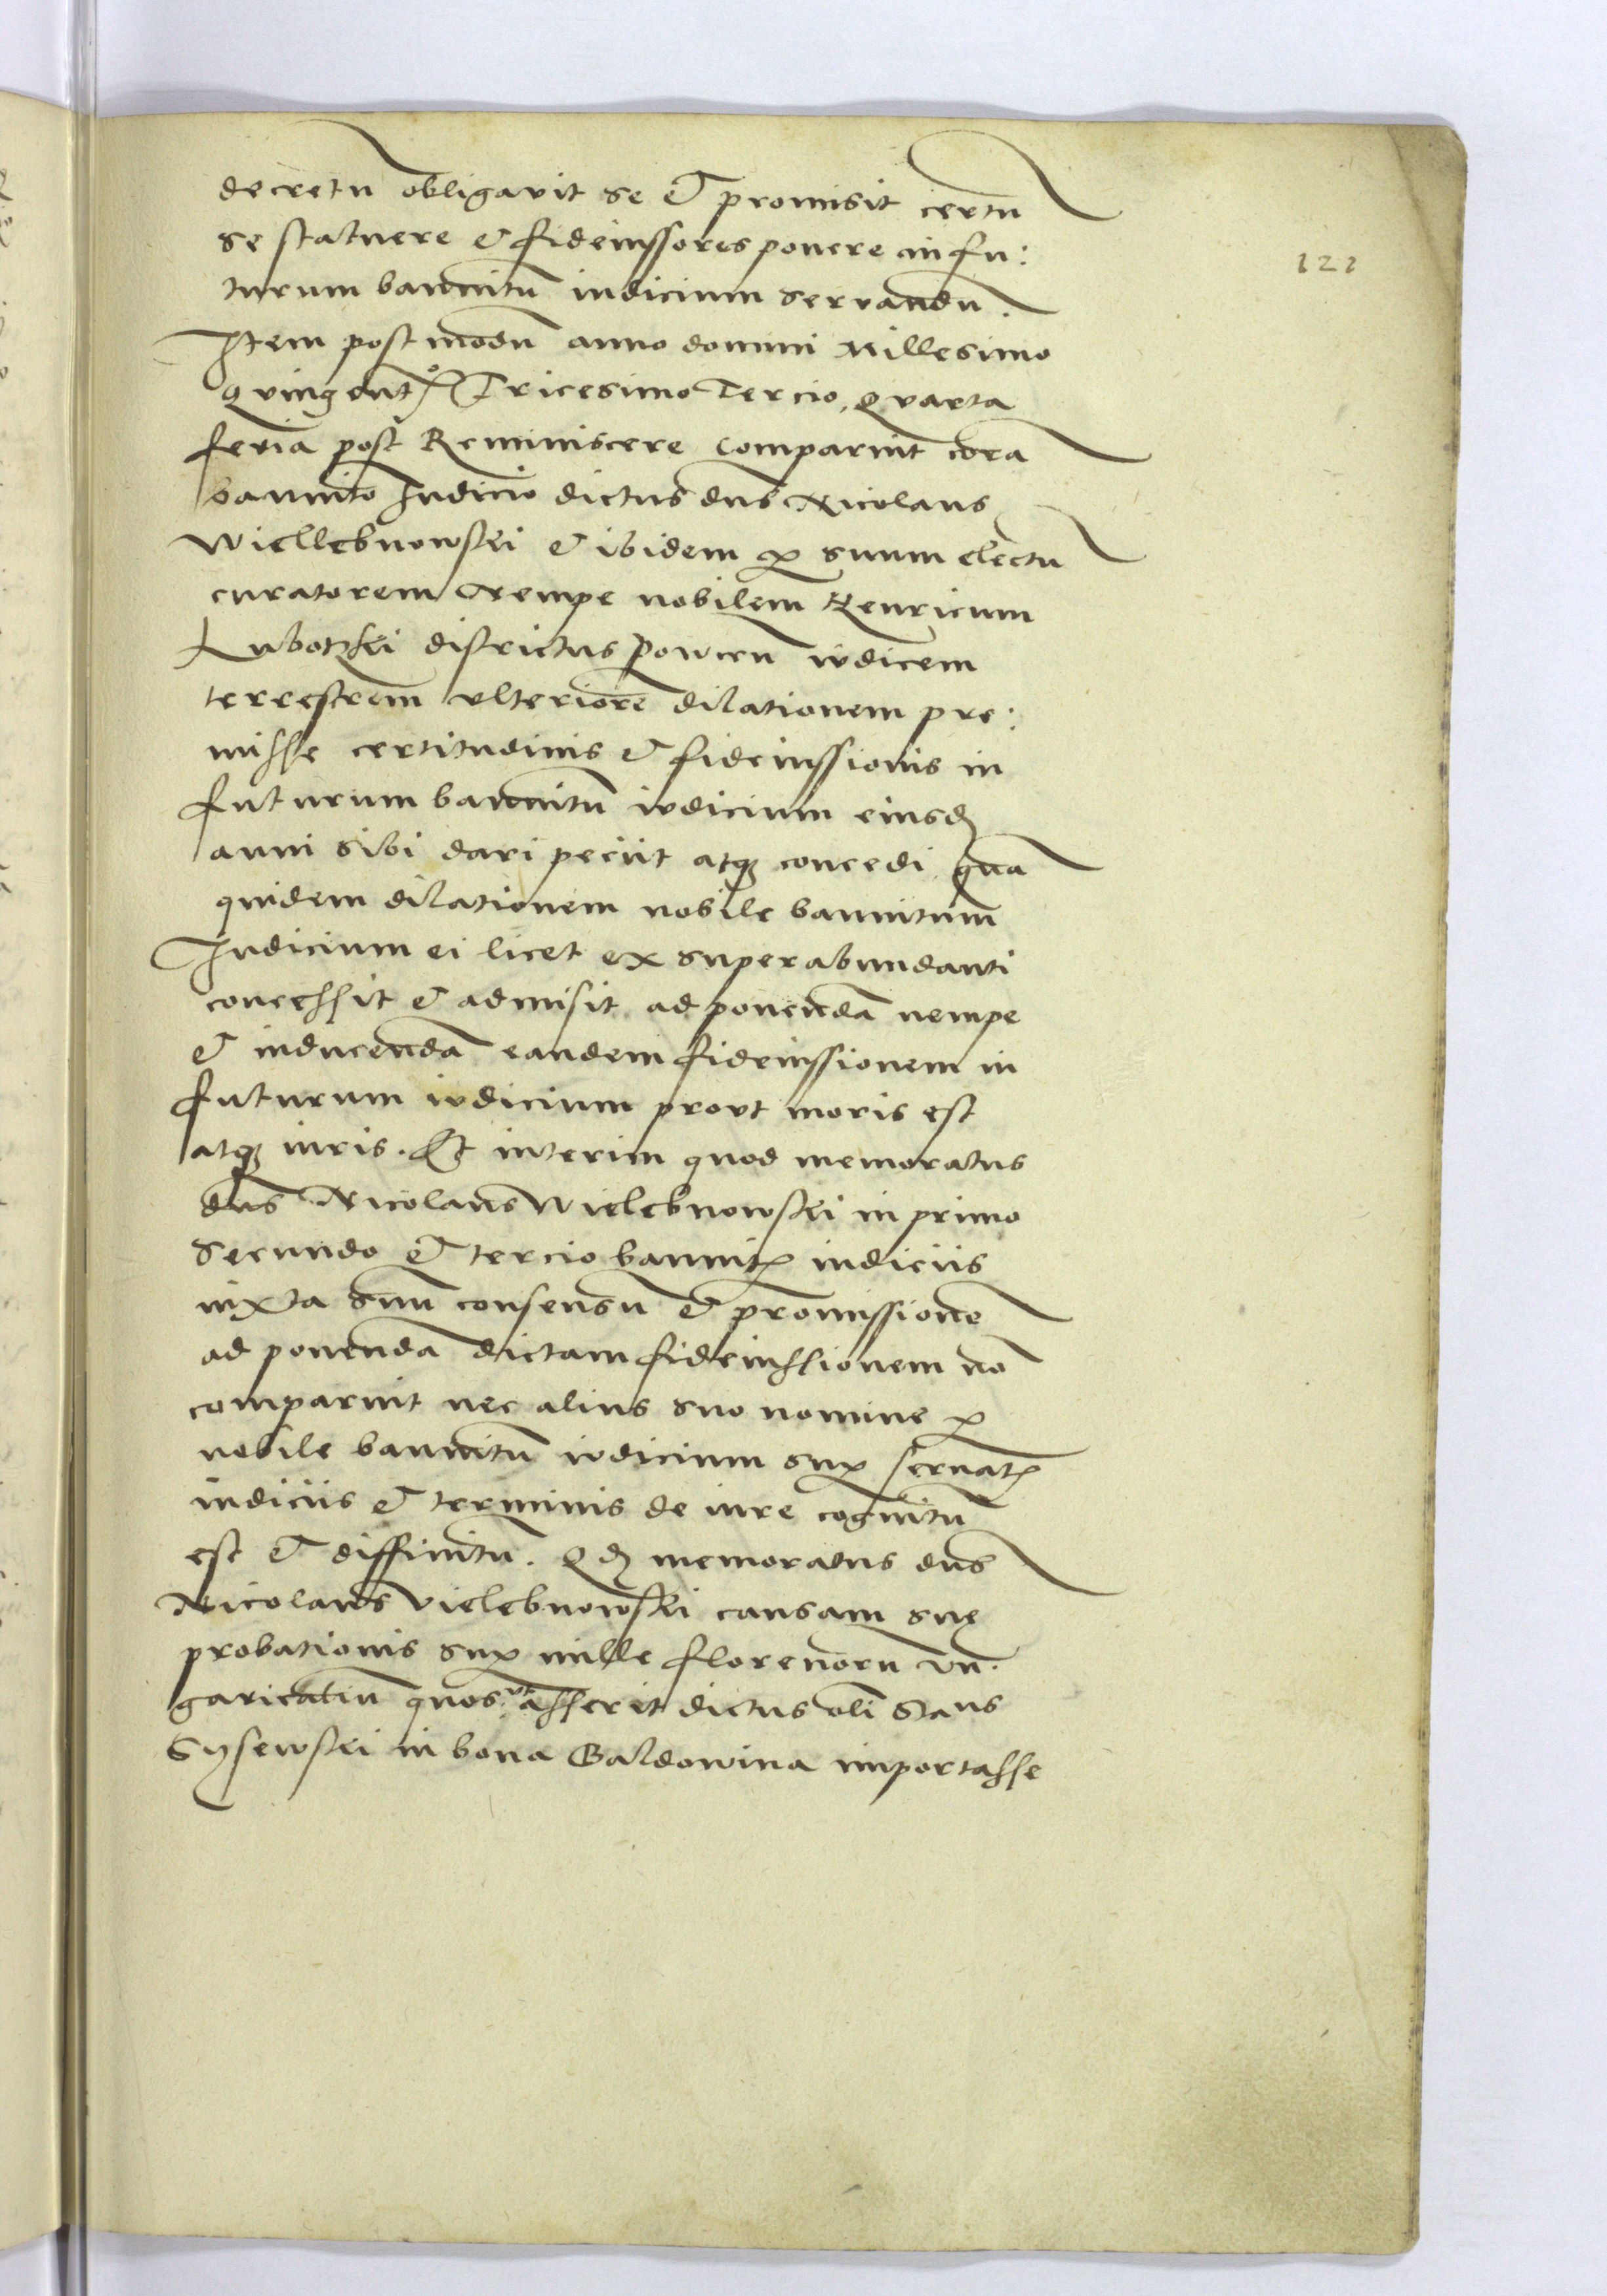 decretu obligavit se et promisit certu
se statuere et fideiussores ponere in fu:
turum bannitu iudicium servandu.
Item post modu anno domini Millesimo
Quingentº Tricesimo Tercio, Quarta
feria post Reminiscere comparuit cora
bannito Iudicio dictus dns Nicolaus
Wiellebnowski et ibidem p suum electu
curatorem Nempe nobilem Henricum
Lubotzki districtus Powcen iudicem
terrestrem ulteriore dilationem pre:
misse certitudinis et fideiussionis in
futurum bannitu iudicium eiusd
anni sibi dari peciit atq concedi qua
quidem dilationem nobile bannitum
Iudicium ei licet ex superabundanti
concessit et admisit ad ponenda nempe
et inducenda eandem fideiussionem in
futurum iudicium prout moris est
atq iuris. Et interim quod memoratus
dns Nicolaus Wielebnowski in primo
secundo et tercio bannit iudiciis
iuxta suu consensu et promissione
ad ponenda dictam fideiussionem no
comparuit nec alius suo nomine p
nobile bannitu iudicium sup servat
iudiciis et terminis de iure cognitu
est et diffinitu. Qd memoratus dns
Nicolaus Vielebnowski causam sue
probationis sup mille florenoru Un.
garicaliu quos ut asserit dictus oli Staus
Gysewski in bona Baldowina importasse
121